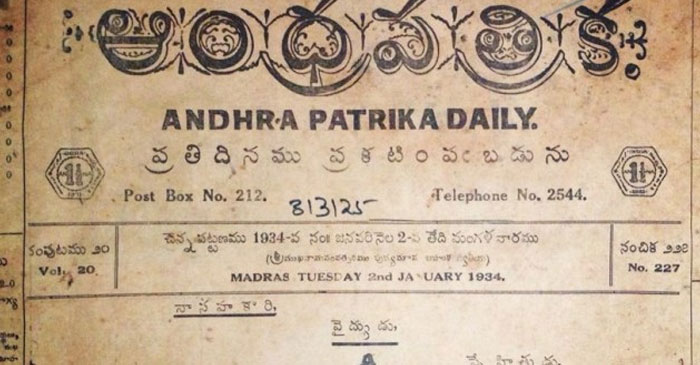 ఆంధ్రపత్రిక
ANDHRA PATRIKA DAILY.
ప్రతిదినము ప్రకటింపఁబడును
1½ 1½
Post Box No. 212. Telephone No. 2544.
8/3/25
సంపుటము ౨౦ చెన్నపట్టణము 1934-వ సం జనవరినెల 2-వ తేది మంగళవారము సంచిక ౨౨౭
Vol. 20. No. 227
MADRAS TUESDAY 2nd JANUARY 1934.
నా సహకారి.
వైద్యుడు.
స్నేహితుడు.